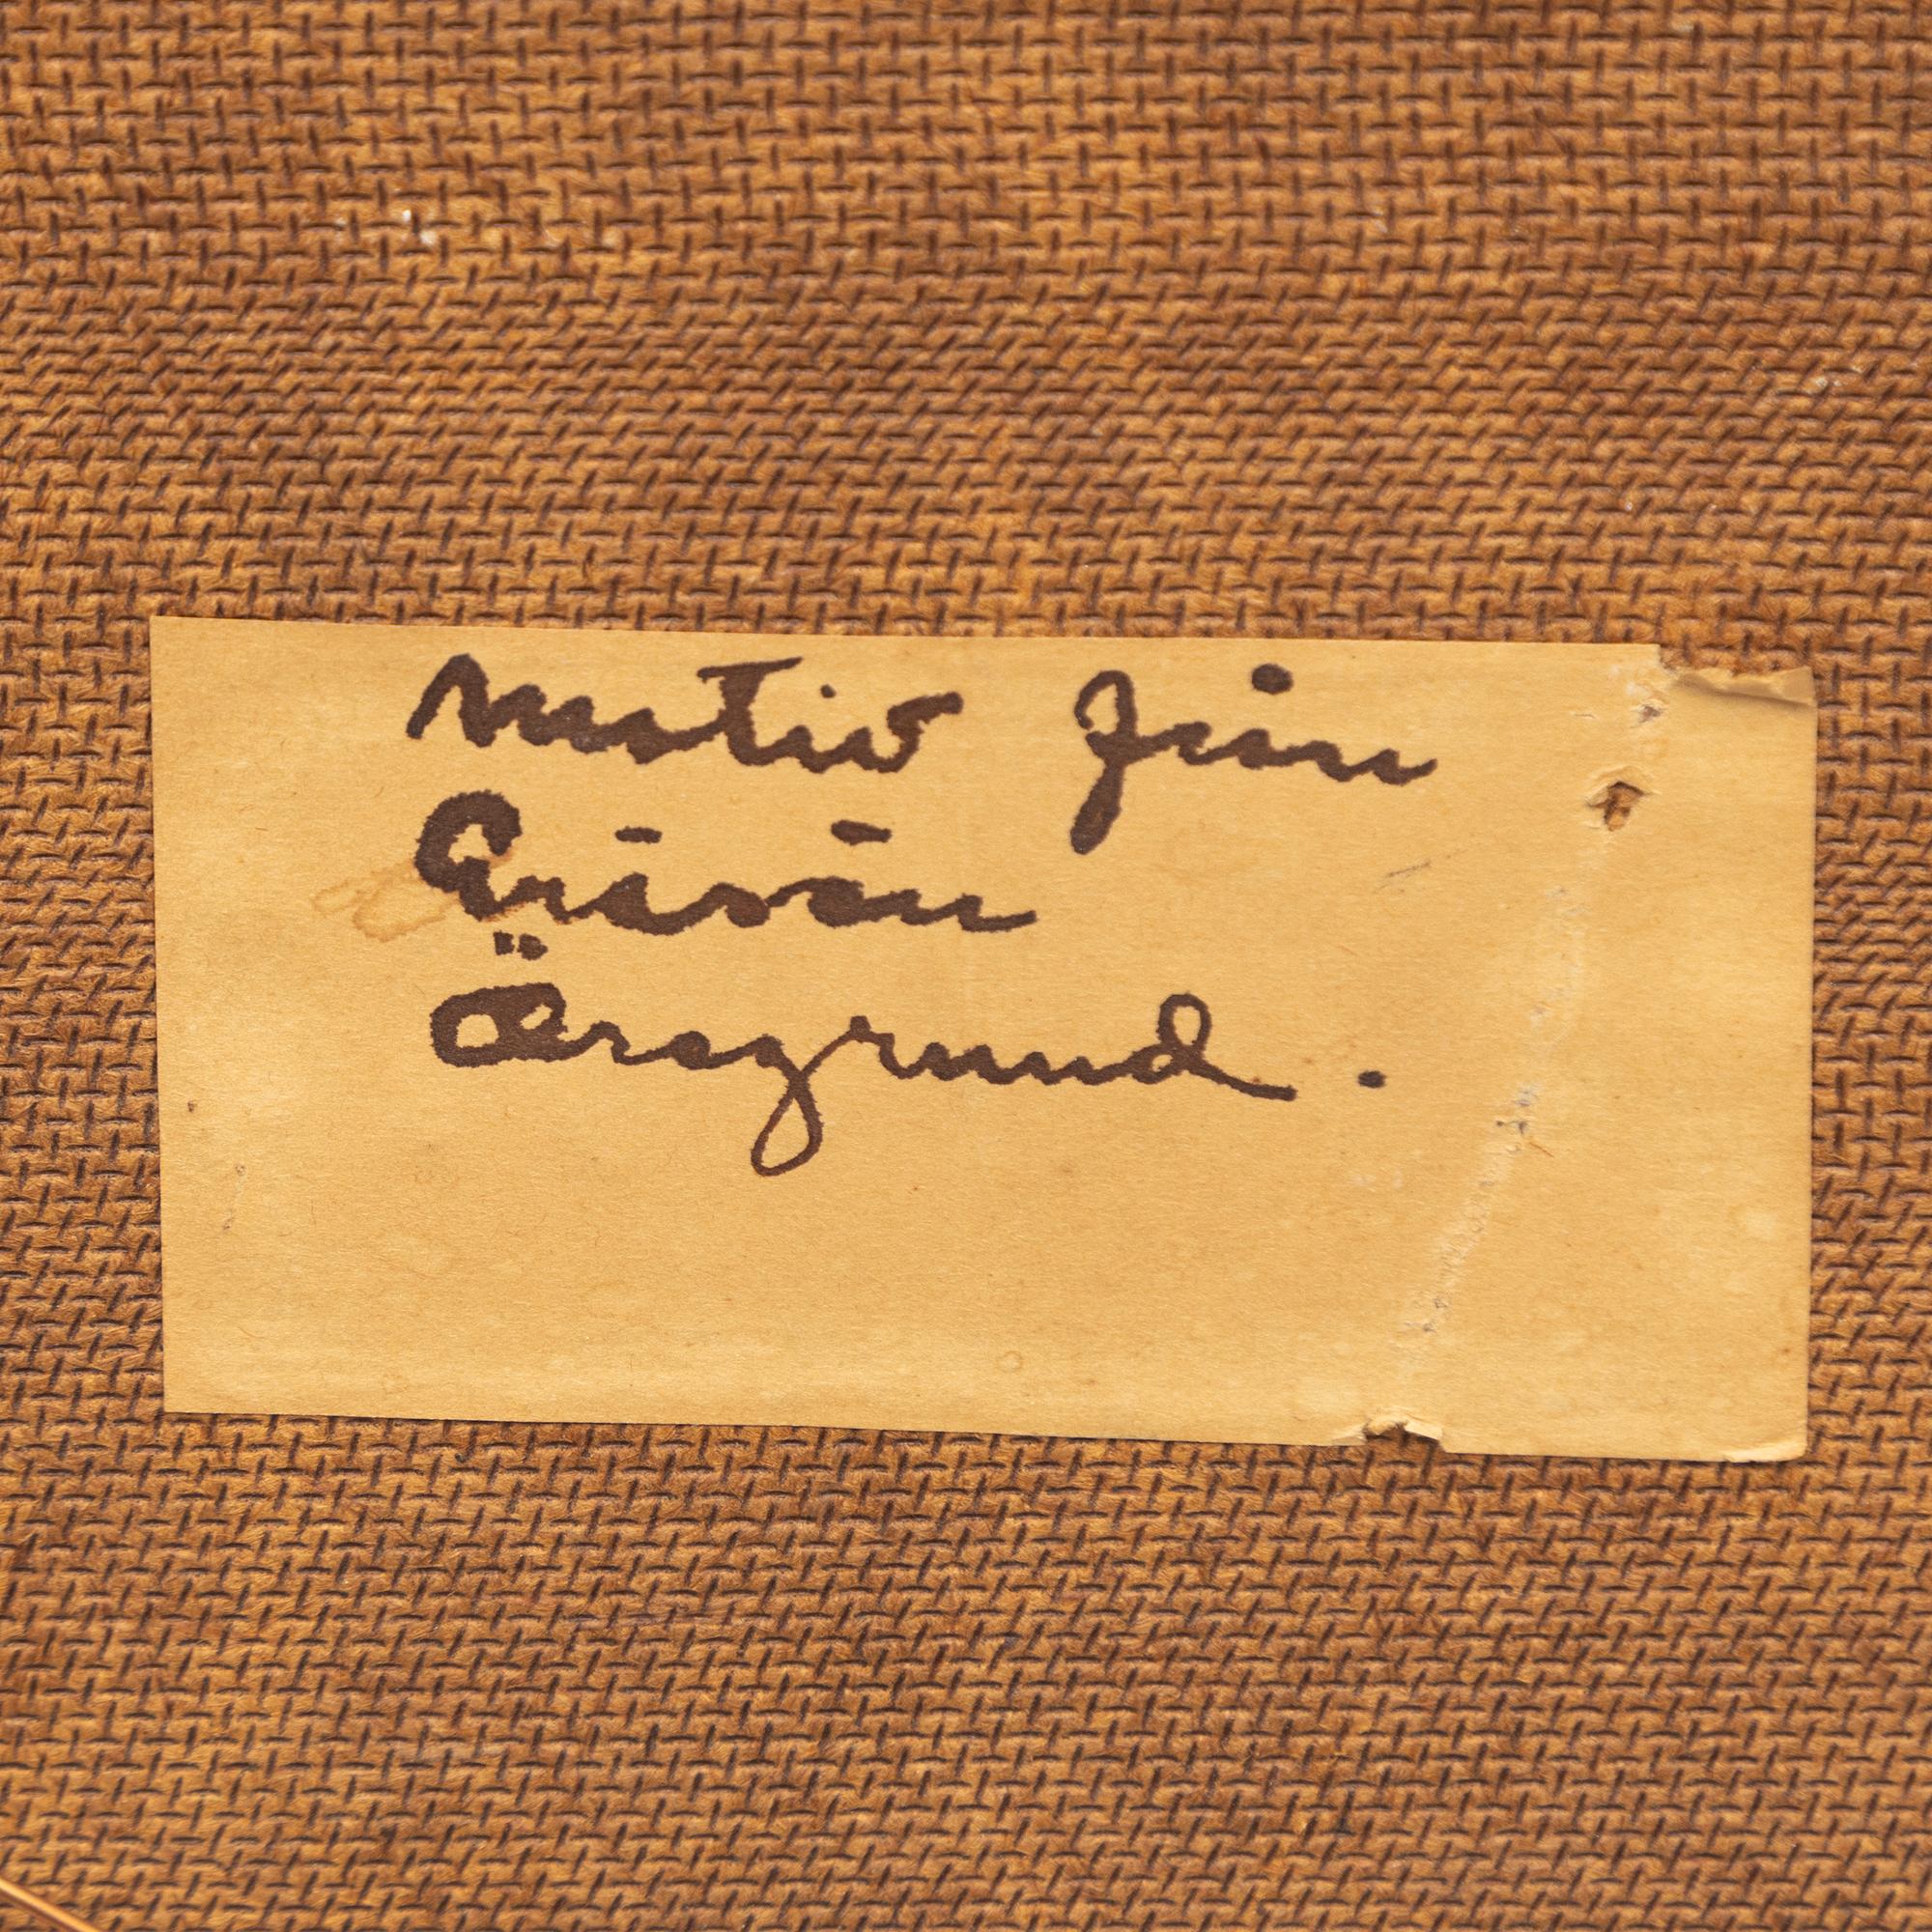 Motiv från
Gräsön
Öresgrund.